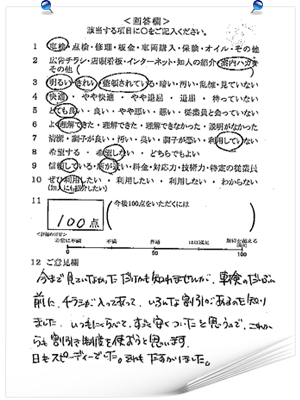 ＜回答欄＞
該当する項目に○をご記入ください。
1 車検・点検・修理・板金・車両購入・保険・オイル・その他
2 広告チラシ・店頭看板・インターネット・知人の紹介・案内ハガキ
その他(
3 明るい・きれい・整頓されている・暗い・汚い・乱雑・見ていない
4 快適・やや快適・やや退屈・退屈・待っていない
5 とても良い・良い・やや悪い・悪い・従業員と会っていない
6 よく理解できた・理解できた・理解できなかった・説明がなかった
7 ・調子が良い・汚い・調子が悪い・利用していない
8 希望する・希望しない・どちらでもよい
9 信頼している・店が近い・料金・対応力・技術力・特定の従業員
10 ぜひ利用したい・利用したい・利用しない・わからない
(知人にも紹介したい)
11 今後100点をいただくには
100点
0 50 100
12 ご意見欄
今まで見ていなかっただけかも知れませんが、車検のだいぶ
前に、チラシが入ってあって、いろんな割引があるのを知り
ました。いつもにくらべて、ずっと安くついたと思うので、これか
らも割引き制度を使おうと思います。
1日もスピーディーでした。とてもたすかりました。